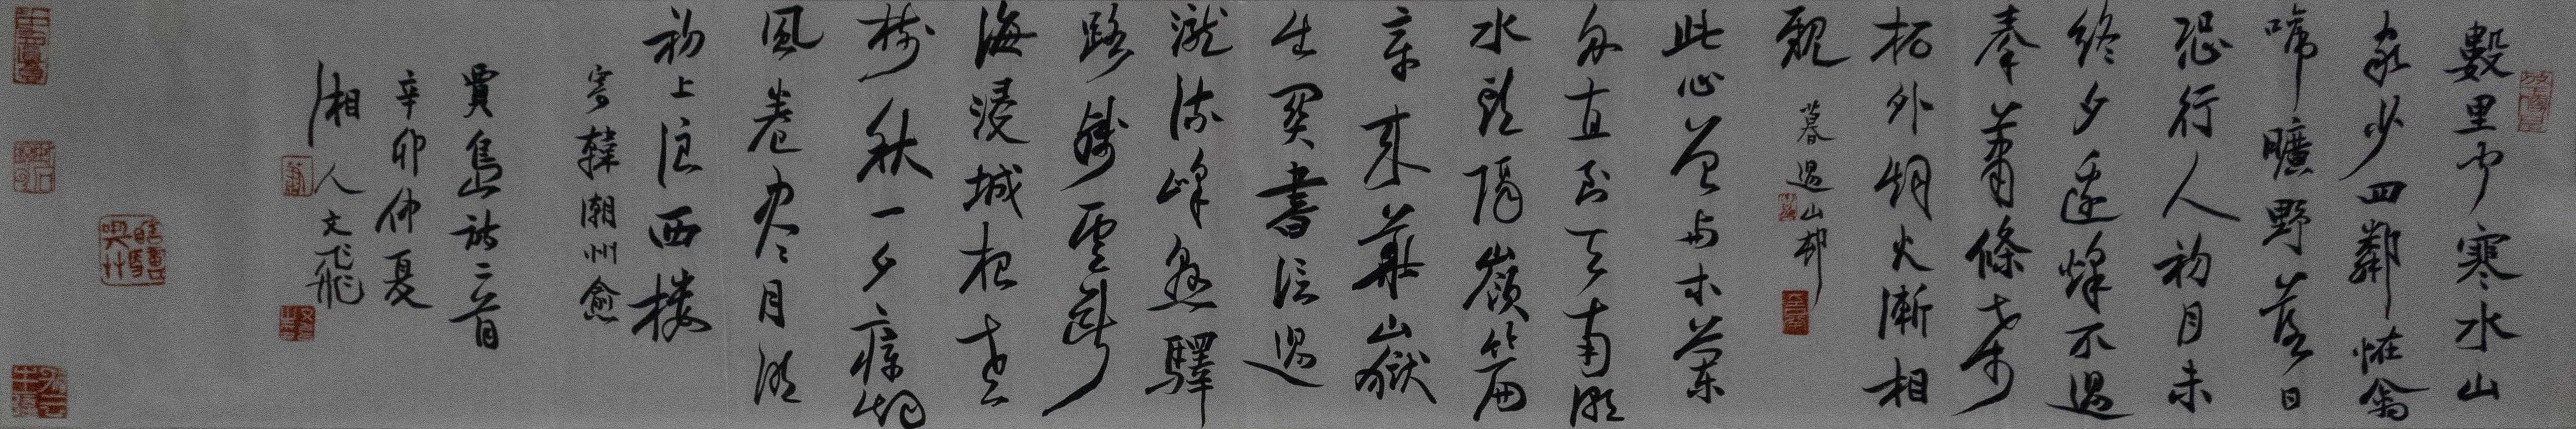 數里聞寒水山
家少四鄰怪禽
啼曠野落日
恐行人初月未
終夕邊烽不過
秦蕭條桑
柘外烟火漸相
親 暮過山邨
此心曾與木蘭
舟直至天南潮
水頭隔嶺篇
章来華嶽
出関書信過
瀧流峰懸驛
路殘雲斷
海浸城根老
樹秋一夕瘴烟
風卷盡月明
初上浪西楼
寄韓潮州愈
賈島詩二首
辛卯仲夏
湘人文飛